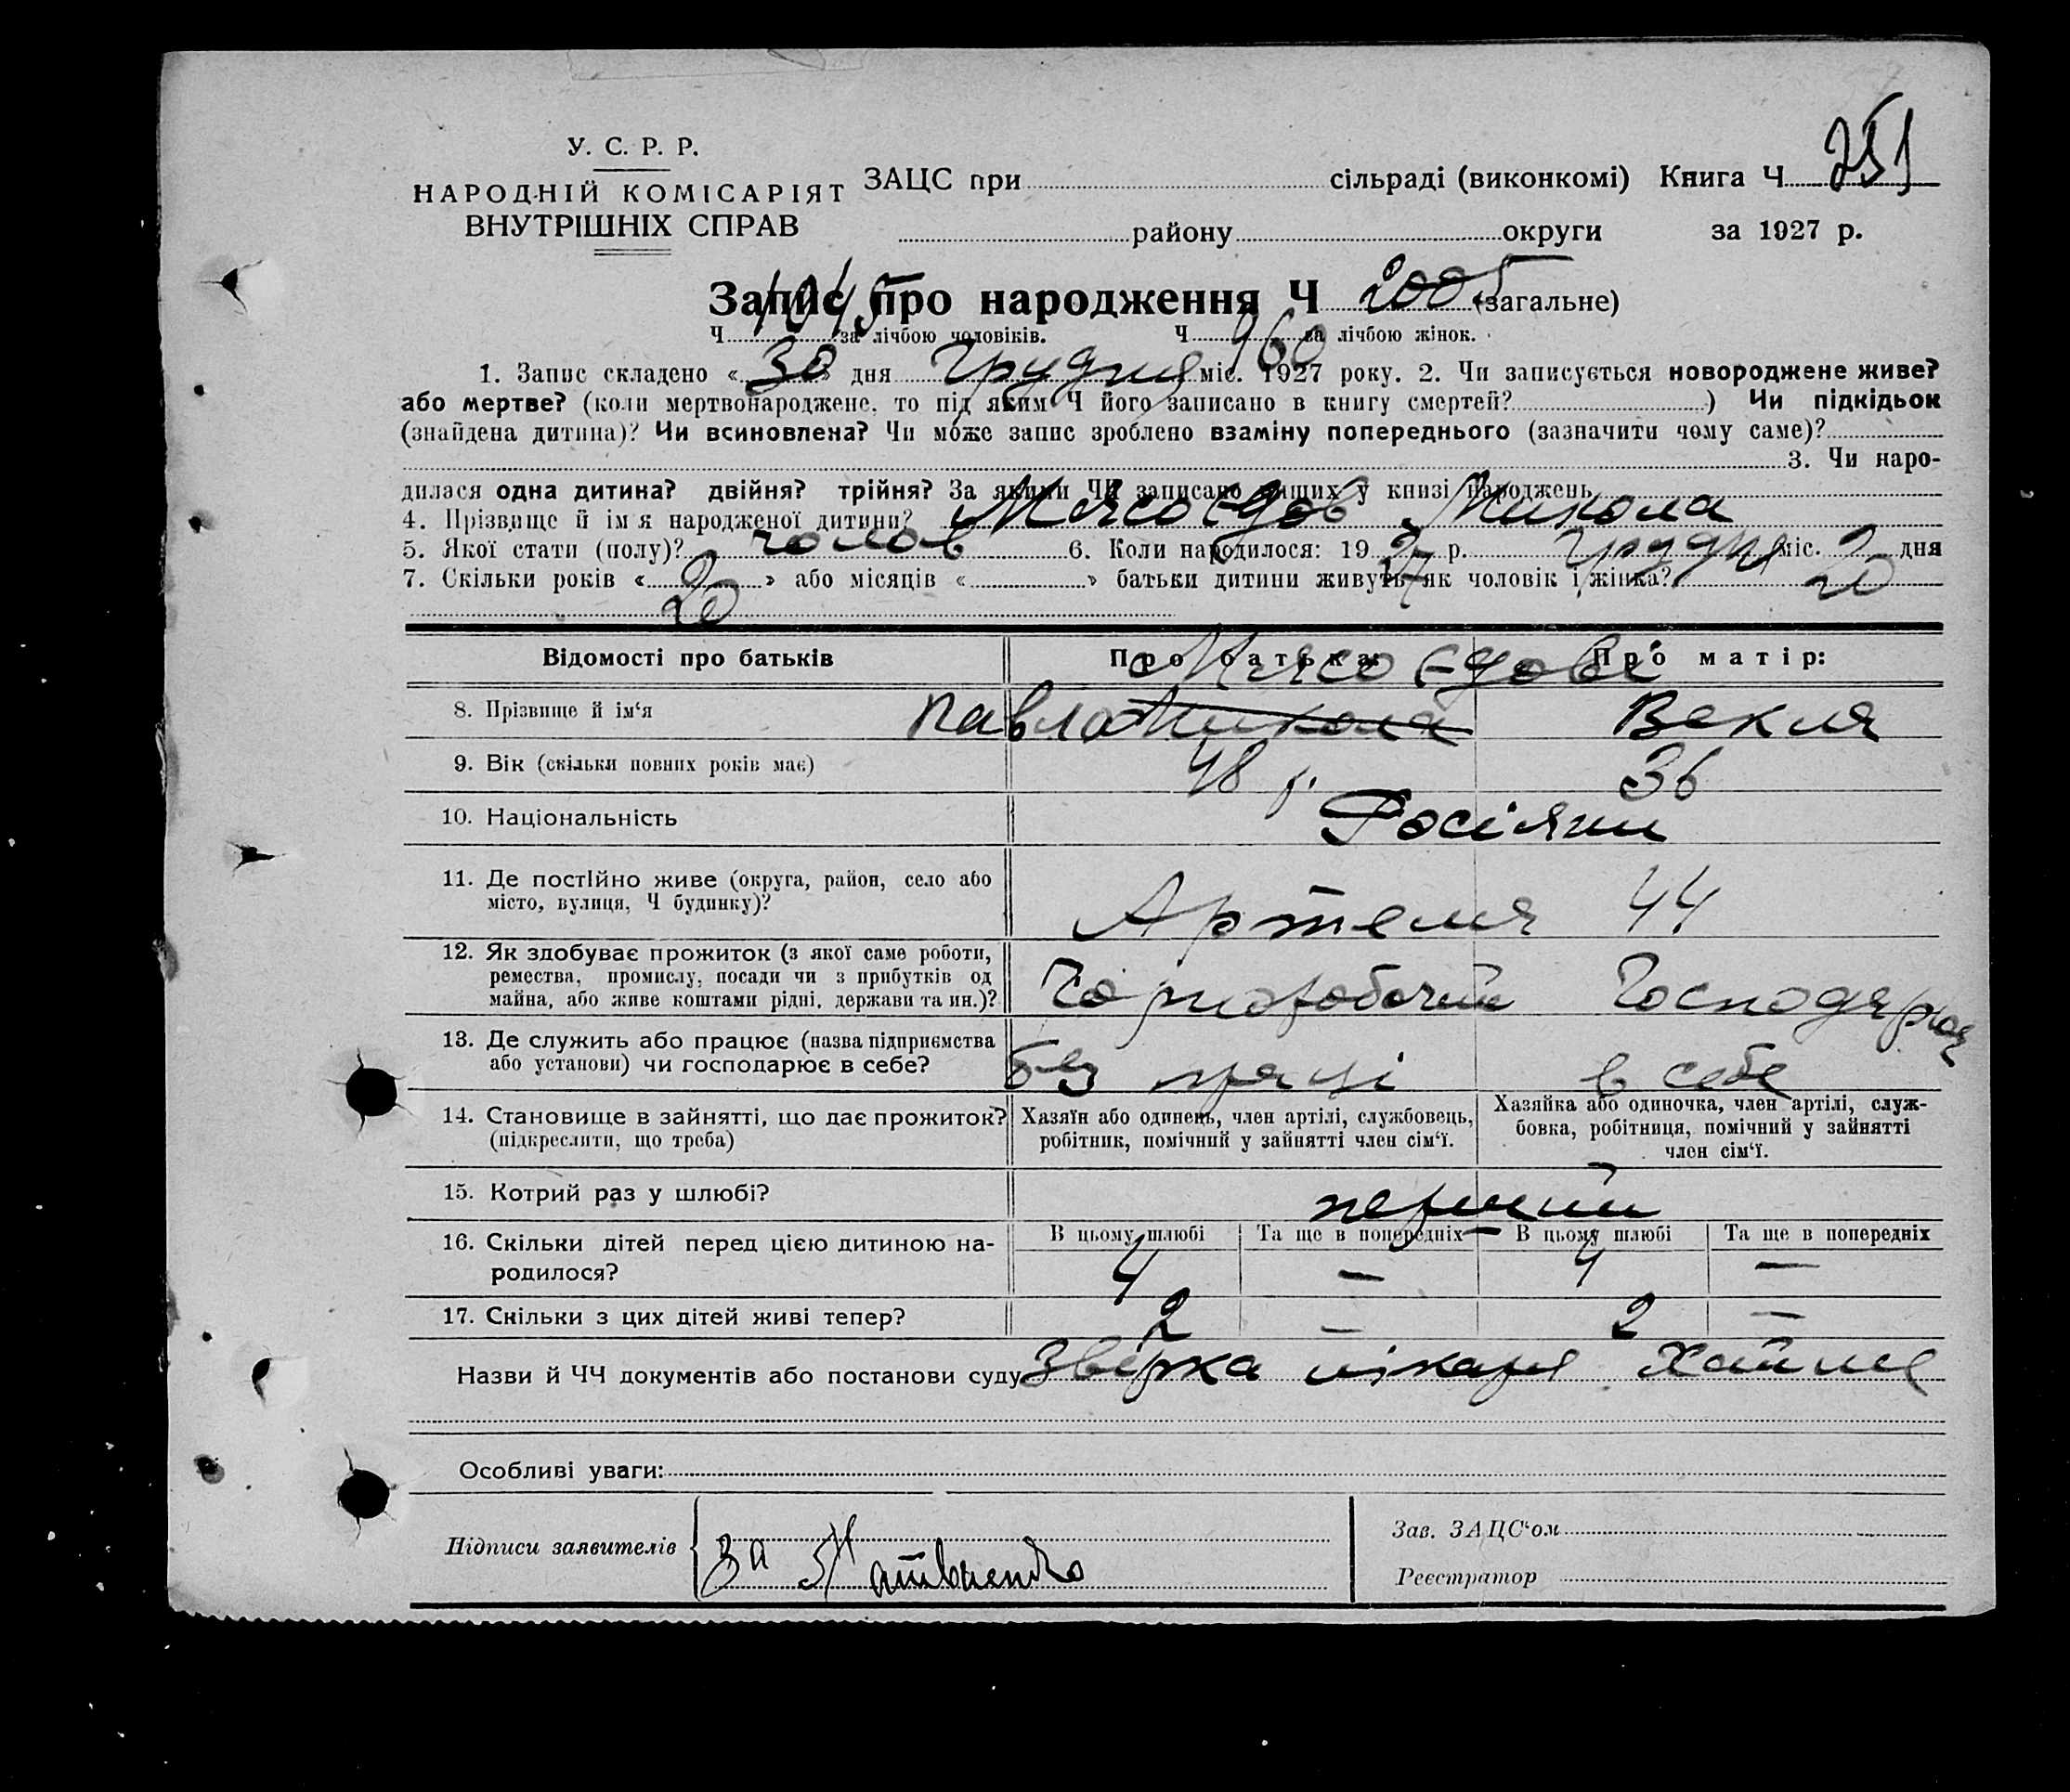 У. С. Р. Р.
НАРОДНІЙ КОМІСАРІЯТ
ВНУТРІШНІХ СПРАВ
ЗАЦС при сільраді (виконкомі) Книга Ч. 251
району округи за 1927 р.
Запис про народження Ч 2005 (загальне)
Ч 1045 за лічбою чоловіків. Ч 960 за лічбою жінок.
1. Запис складено «30» дня грудня міс. 1927 року. 2. Чи записується новороджене живе?
або мертве? (коли мертвонароджене, то під яким Ч його записано в книгу смертей? ) Чи підкідьок
(знайдена дитина)? Чи всиновлена? Чи може запис зроблено взаміну попереднього (зазначити чому саме)?
3. Чи наро-
дилася одна дитина? двійня? трійня? За якими ЧЧ записано инших у книзі народжень
4. Прізвище й ім я народженої дитини? Мясоєдов Микола
5. Якої стати (полу)? чолов 6. Коли народилося: 1927 р. грудня міс. 20 дня
7. Скільки років «20» або місяців « » батьки дитини живуть як чоловік і жінка? 20
Відомості про батьків Про батька: Про матір:
Мясоєдови
8. Прізвище й ім‘я Павло Микола Векля
9. Вік (скільки повних років має) 48 р. 36
10. Національність Росіяни
11. Де постійно живе (округа, район, село або
місто, вулиця, Ч будинку)? Артема 44
12. Як здобуває прожиток (з якої саме роботи,
ремества, промислу, посади чи з прибутків од
майна, або живе коштами рідні, держави та ин.)? Чорноробочий Господарює
13. Де служить або працює (назва підприємства
або установи) чи господарює в себе? без праці в себе
14. Становище в зайнятті, що дає прожиток?
(підкреслити, що треба)
Хазяїн або одинець, член артілі, службовець,
робітник, помічний у зайнятті член сім‘ї.
Хазяйка або одиночка, член артілі, служ-
бовка, робітниця, помічний у зайнятті
член сім‘ї.
15. Котрий раз у шлюбі? перший
16. Скільки дітей перед цією дитиною на-
родилося?
В цьому шлюбі Та ще в попередніх В цьому шлюбі Та ще в попередніх
4 — 4 —
17. Скільки з цих дітей живі тепер? 2 — 2 —
Назви й ЧЧ документів або постанови суду Звірка лікаря
Особливі уваги:
Підписи заявителів За
Зав. ЗАЦС‘ом
Реєстратор